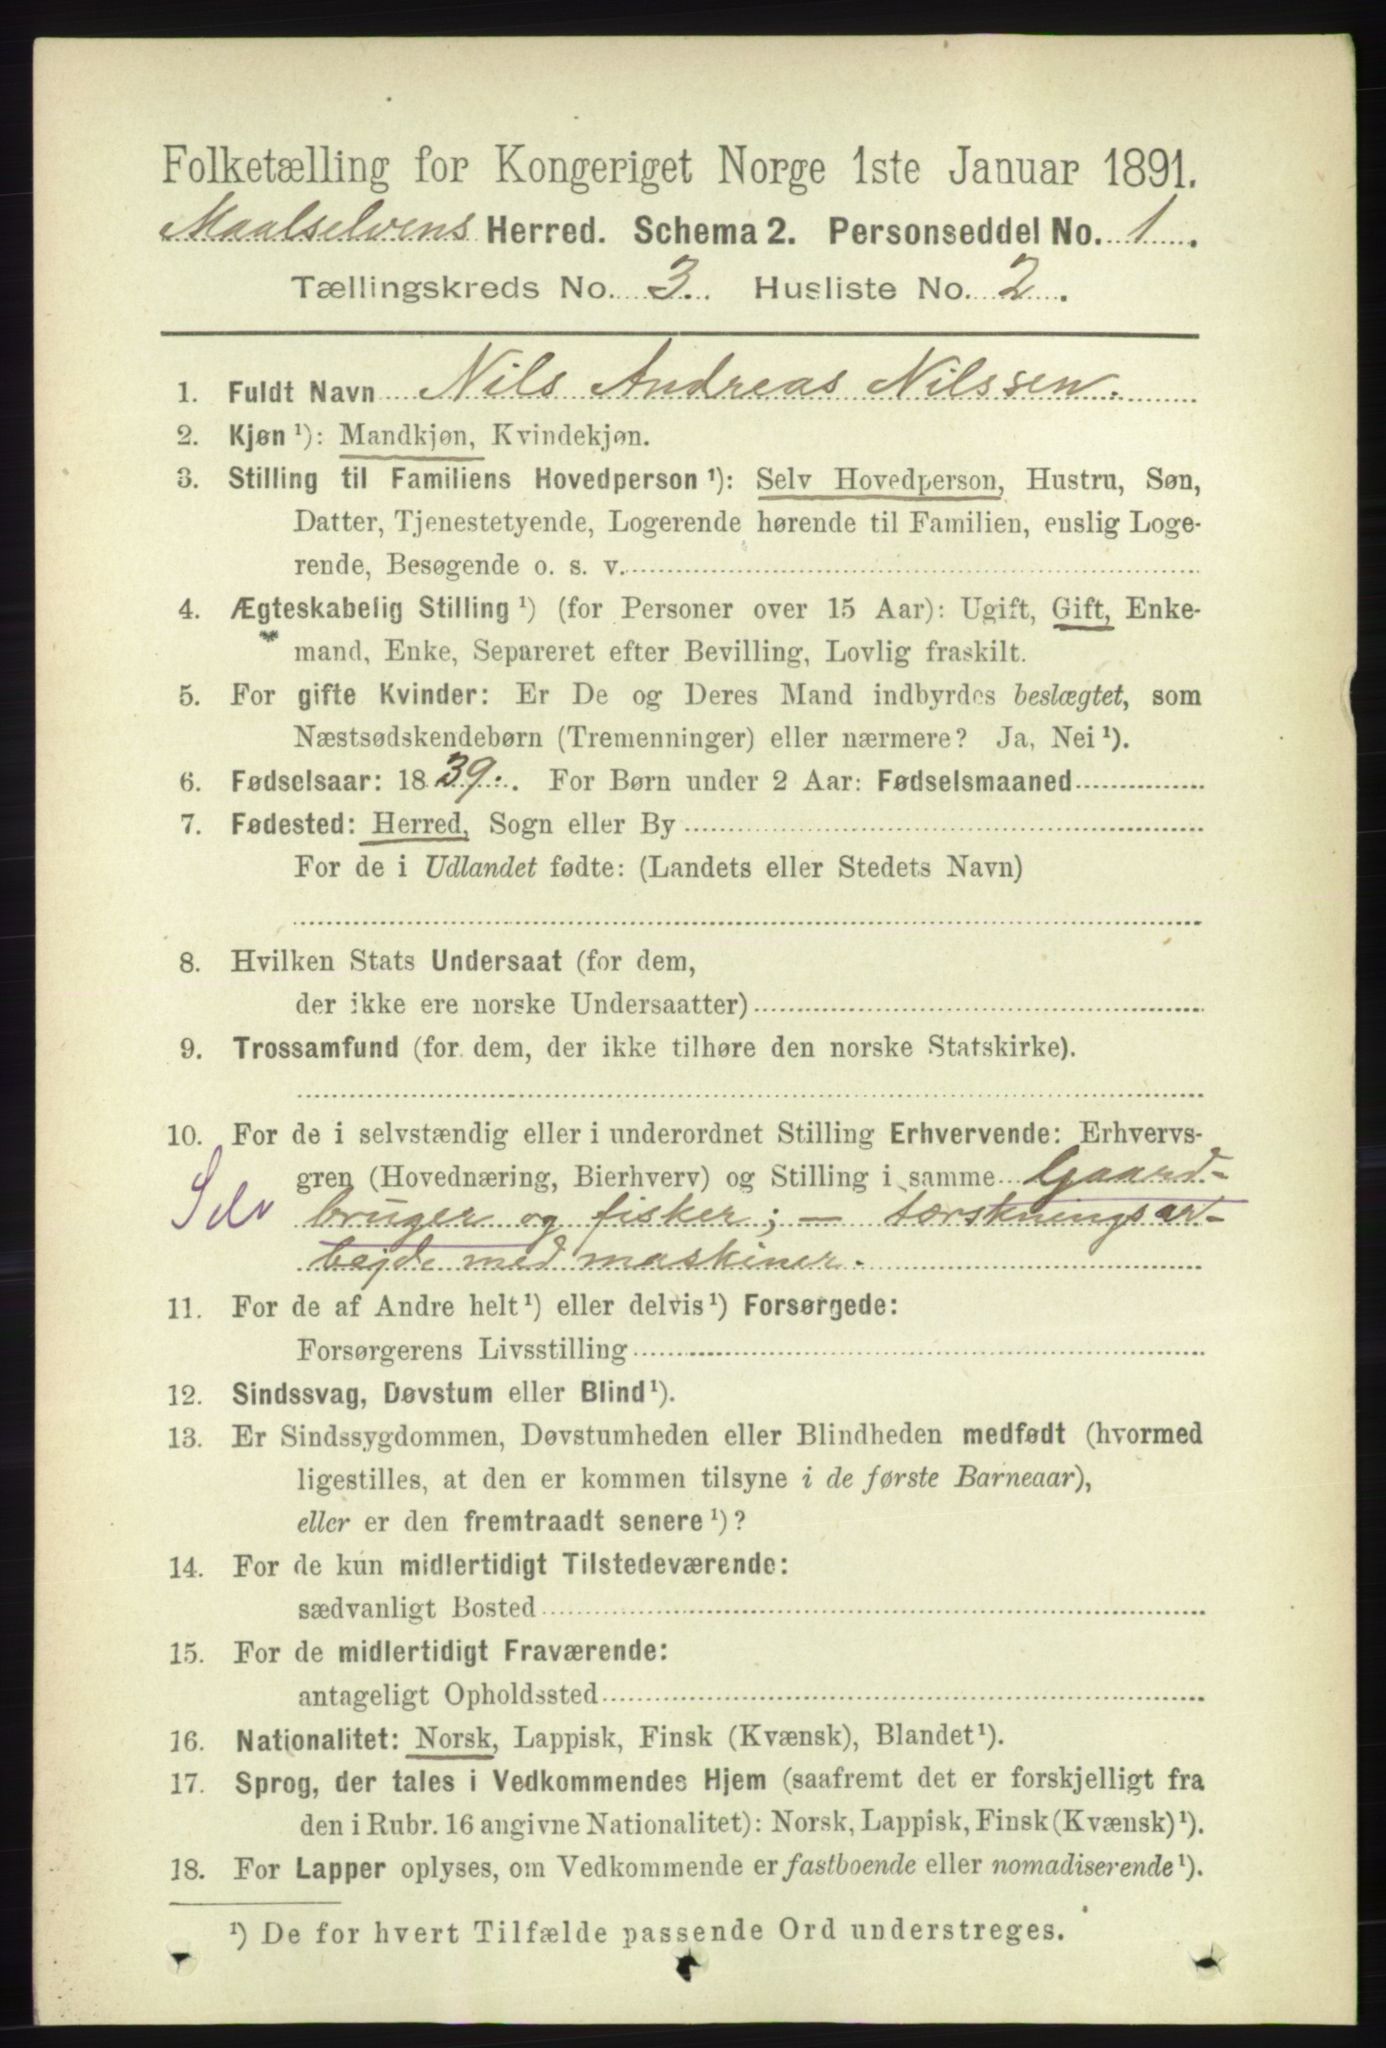 Folketælling for Kongeriget Norge 1ste Januar 1891.
Maalselvens Herred. Schema 2. Personseddel No. 1.
Tællingskreds No. 3. Husliste No. 2.
1. Fuldt Navn Nils Andreas Nilssen.
2. Kjøn ¹): Mandkjøn, Kvindekjøn.
3. Stilling til Familiens Hovedperson ¹): Selv Hovedperson, Hustru, Søn,
Datter, Tjenestetyende, Logerende hørende til Familien, enslig Loge-
rende, Besøgende o. s. v.
4. Ægteskabelig Stilling ¹) (for Personer over 15 Aar): Ugift, Gift, Enke-
mand, Enke, Separeret efter Bevilling, Lovlig fraskilt.
5. For gifte Kvinder: Er De og Deres Mand indbyrdes beslægtet, som
Næstsødskendebørn (Tremenninger) eller nærmere? Ja, Nei ¹).
6. Fødselsaar: 1839. For Børn under 2 Aar: Fødselsmaaned
7. Fødested: Herred, Sogn eller By
For de i Udlandet fødte: (Landets eller Stedets Navn)
8. Hvilken Stats Undersaat (for dem,
der ikke ere norske Undersaatter)
9. Trossamfund (for dem, der ikke tilhøre den norske Statskirke).
10. For de i selvstændig eller i underordnet Stilling Erhvervende: Erhvervs-
gren (Hovednæring, Bierhverv) og Stilling i samme Gaard-
Selv bruger og fisker; – tærskningsar-
bejde med maskiner.
11. For de af Andre helt ¹) eller delvis ¹) Forsørgede:
Forsørgerens Livsstilling
12. Sindssvag, Døvstum eller Blind ¹).
13. Er Sindssygdommen, Døvstumheden eller Blindheden medfødt (hvormed
ligestilles, at den er kommen tilsyne i de første Barneaar),
eller er den fremtraadt senere ¹)?
14. For de kun midlertidigt Tilstedeværende:
sædvanligt Bosted
15. For de midlertidigt Fraværende:
antageligt Opholdssted
16. Nationalitet: Norsk, Lappisk, Finsk (Kvænsk), Blandet ¹).
17. Sprog, der tales i Vedkommendes Hjem (saafremt det er forskjelligt fra
den i Rubr. 16 angivne Nationalitet): Norsk, Lappisk, Finsk (Kvænsk) ¹).
18. For Lapper oplyses, om Vedkommende er fastboende eller nomadiserende ¹).
¹) De for hvert Tilfælde passende Ord understreges.